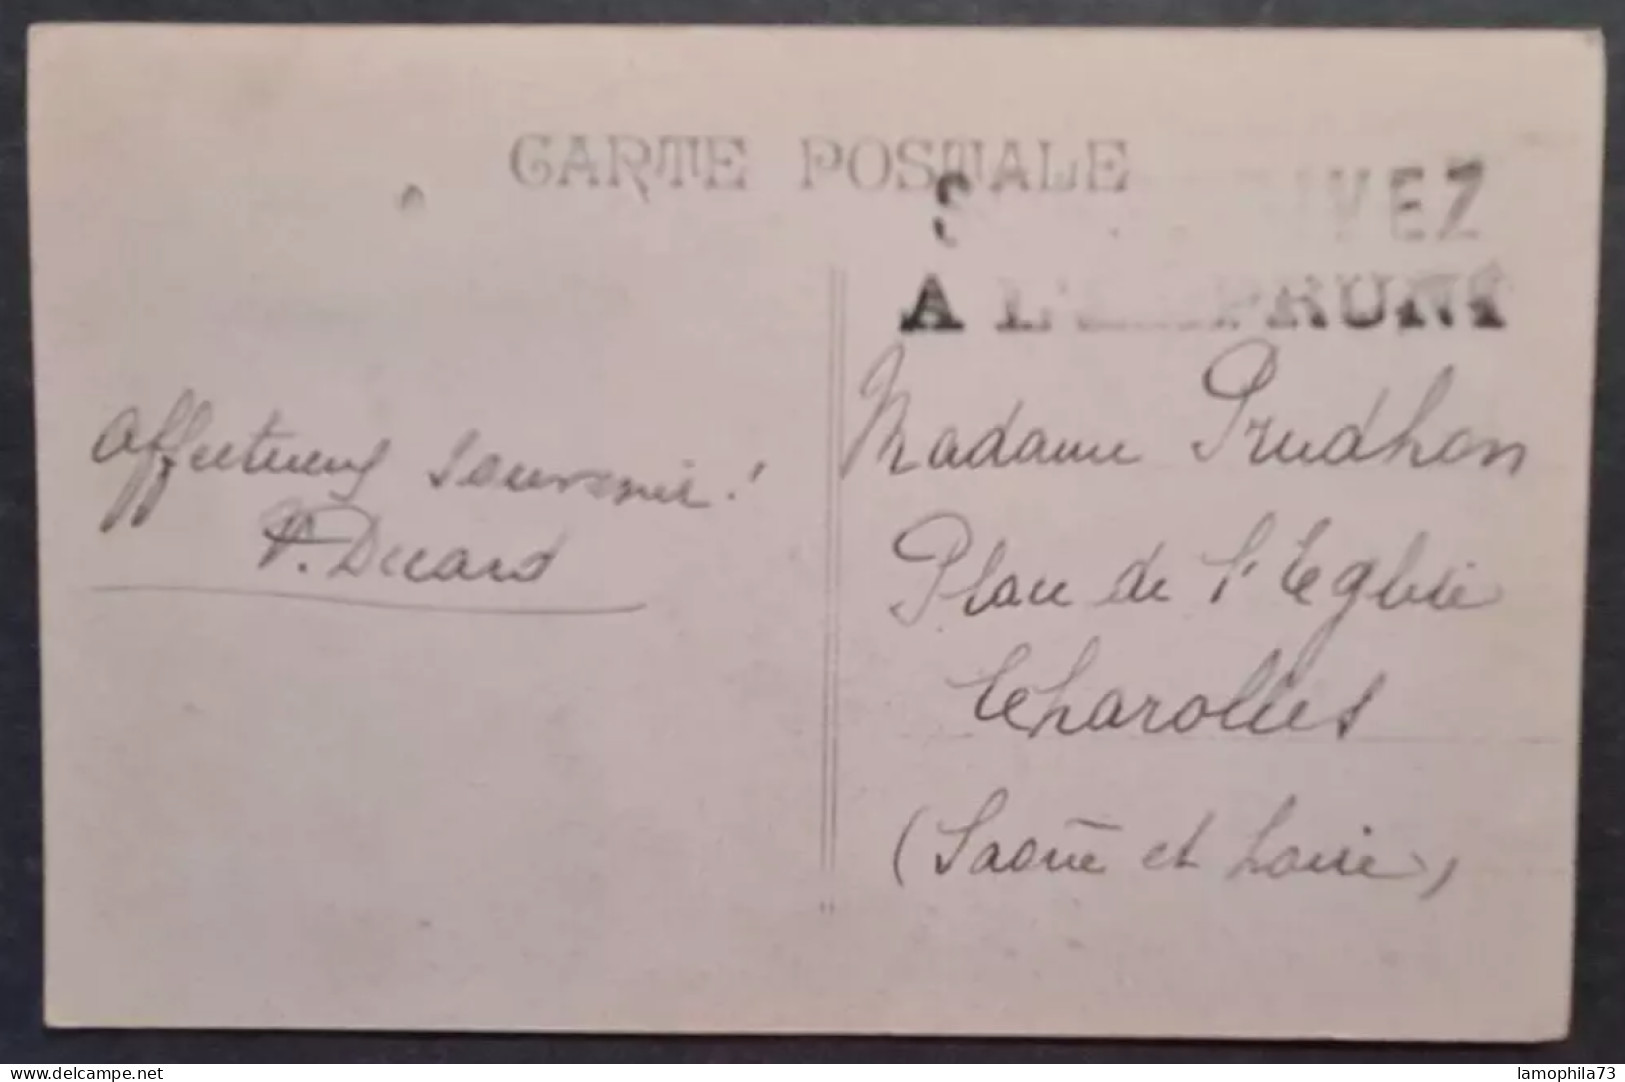 CARTE POSTALE
S IVEZ
A L'E PRUNT
Affectueux souvenir!
Madame Prudhon
Place de l'Eglise
Charolles
(Saône et Loire)
www.delcampe.net
lamophila73